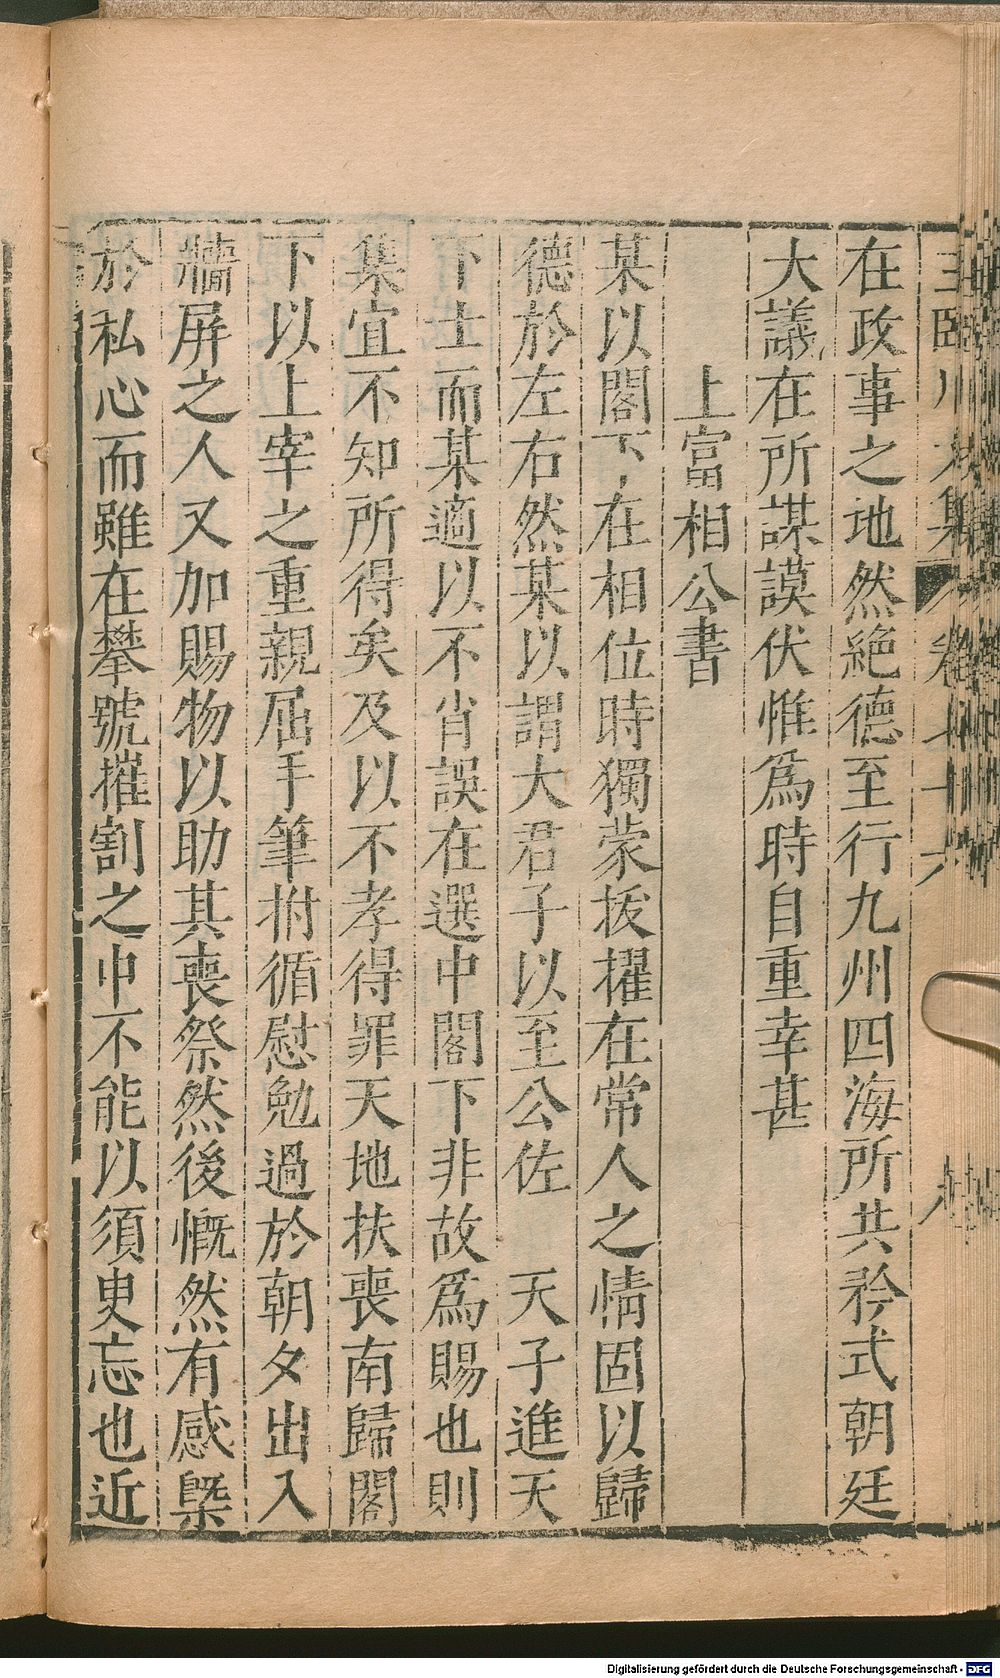 在政事之地然絶德至行九州四海所共矜式朝廷
大議在所謀謨伏惟爲時自重幸甚
上富相公書
某以閣下在相位時獨蒙拔擢在常人之情固以歸
德於左右然某以謂大君子以至公佐 天子進天
下士而某適以不肖誤在選中閣下非故爲賜也則
集宜不知所得矣及以不孝得罪天地扶喪南歸閣
下以上宰之重親屈手筆拊循慰勉過於朝夕出入
牆屏之人又加賜物以助其喪祭然後慨然有感槩
於私心而雖在攀號摧割之中不能以須臾忘也近
Digitalisierung gefördert durch die Deutsche Forschungsgemeinschaft - DFG